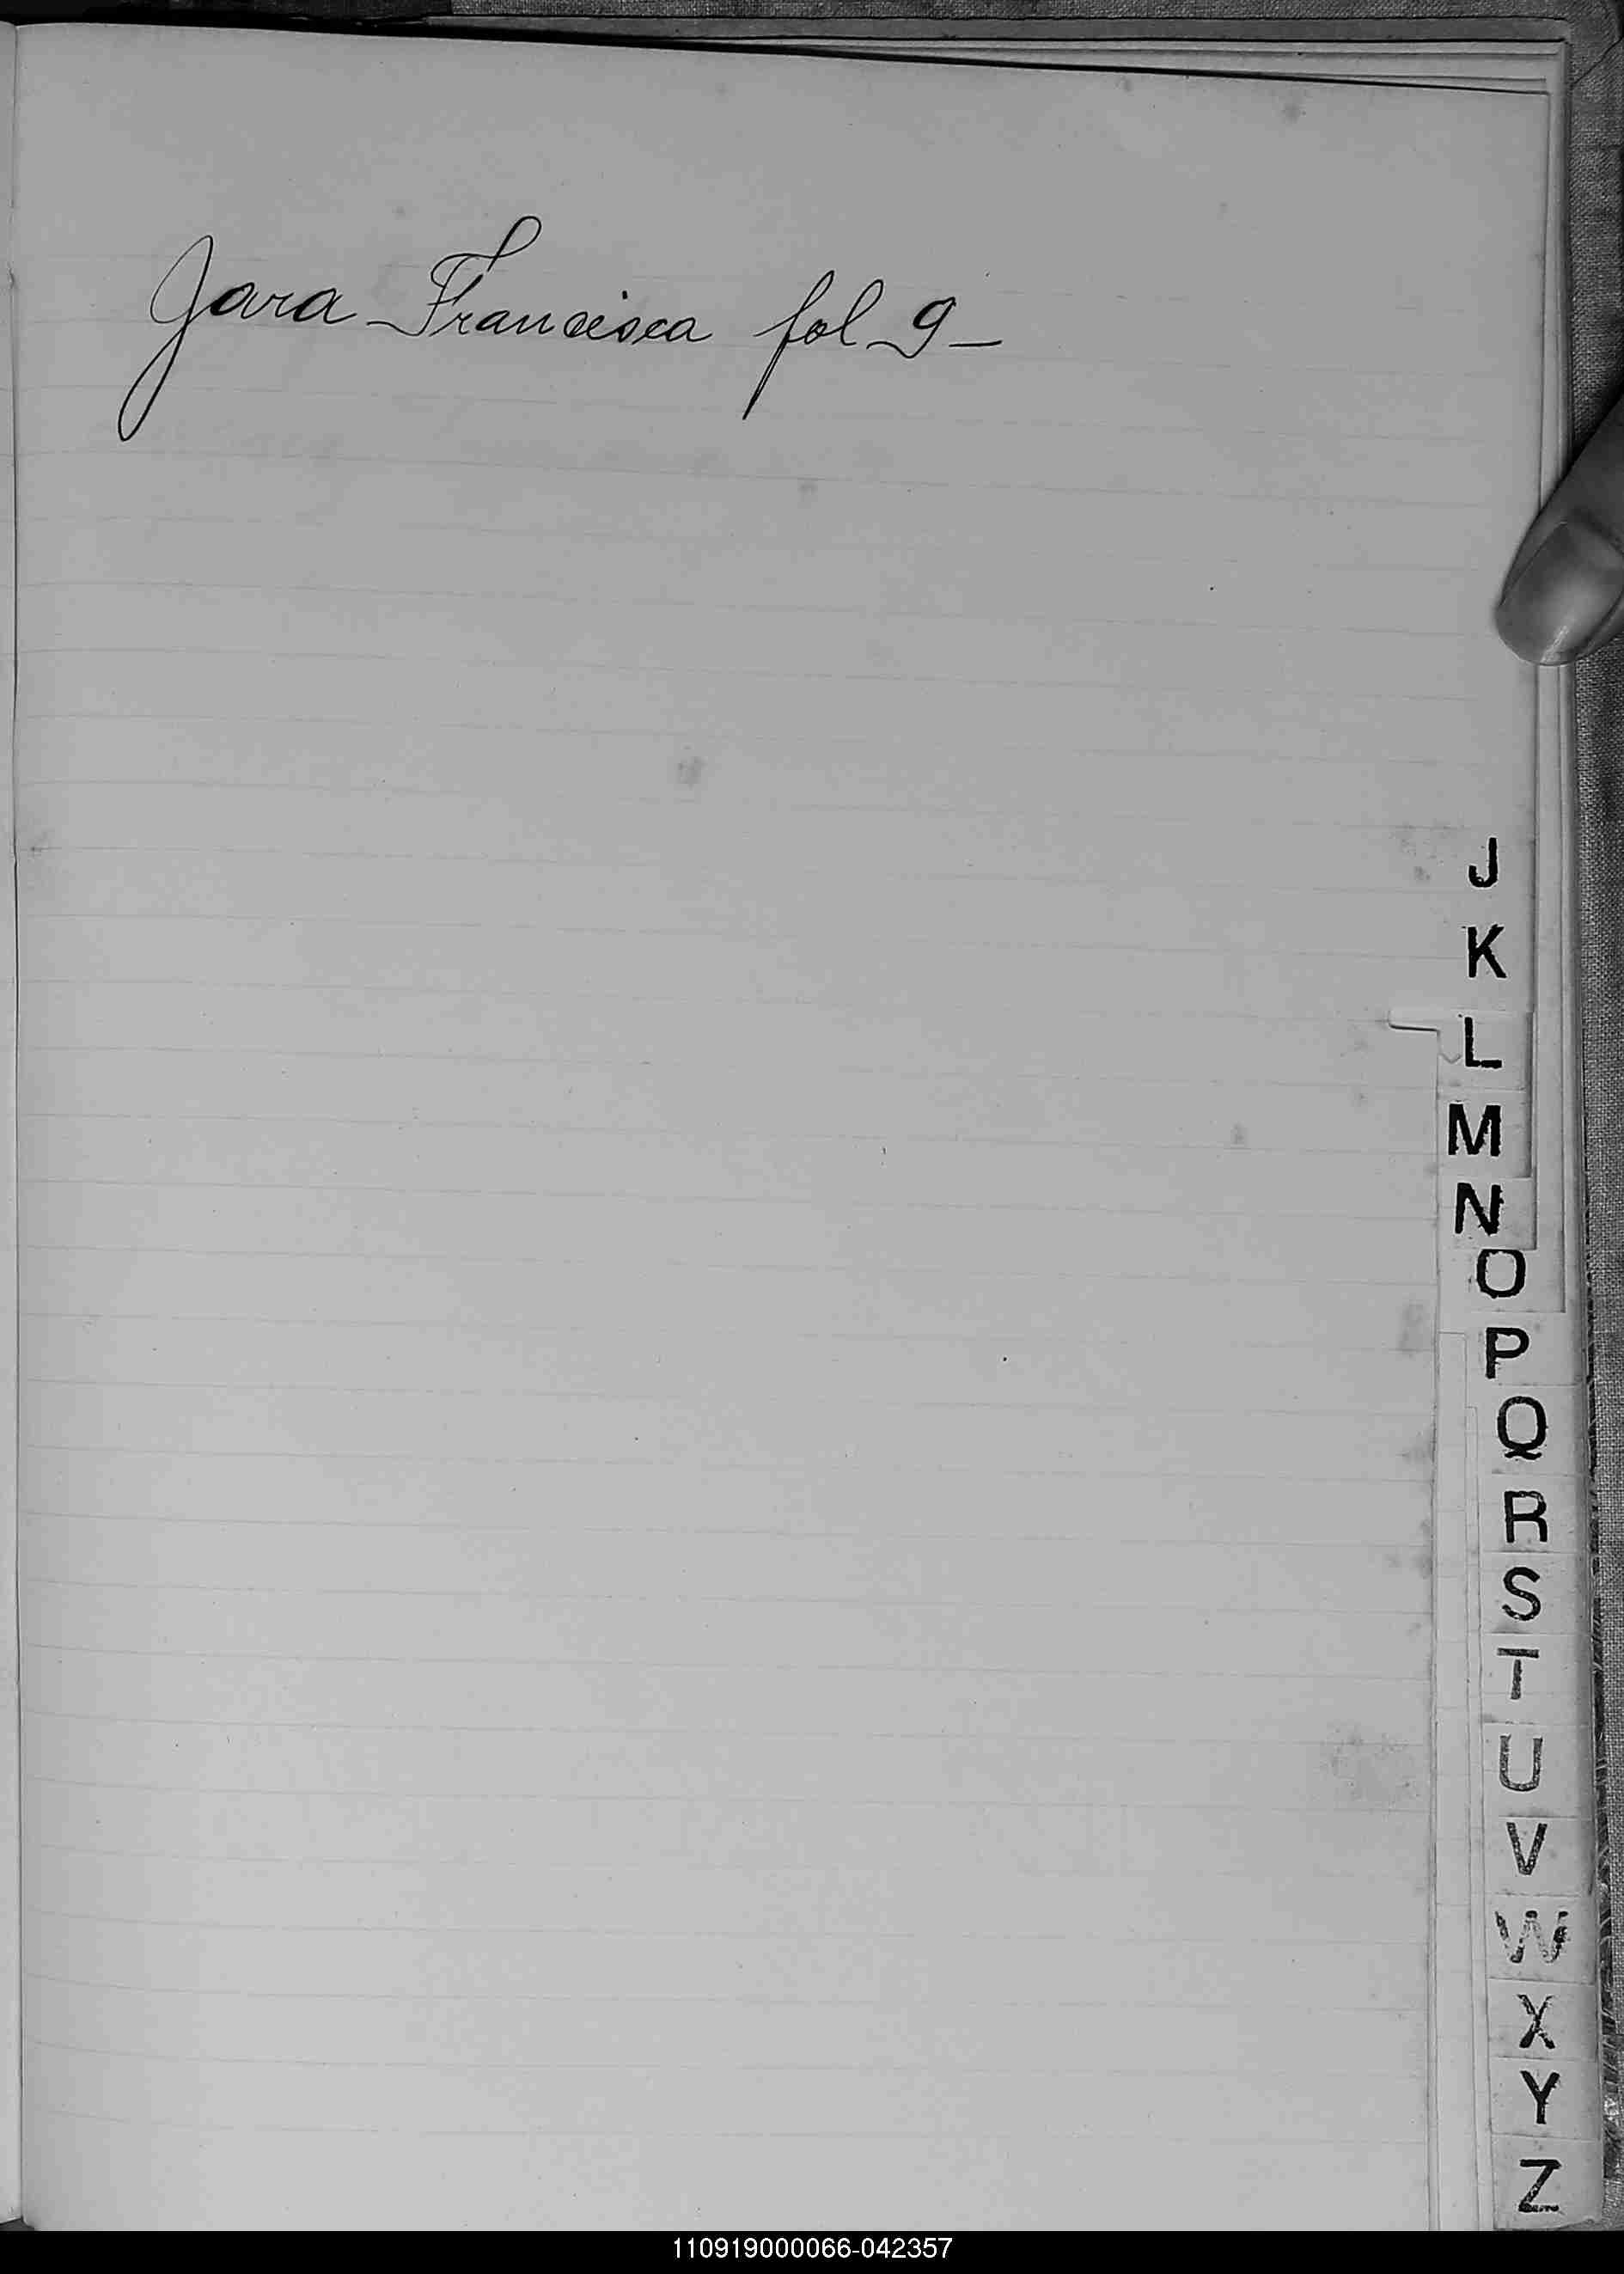 Jara Francisca fol 9-
J
K
L
M
N
O
P
Q
R
S
T
U
V
W
X
Y
Z
110919000066-042357